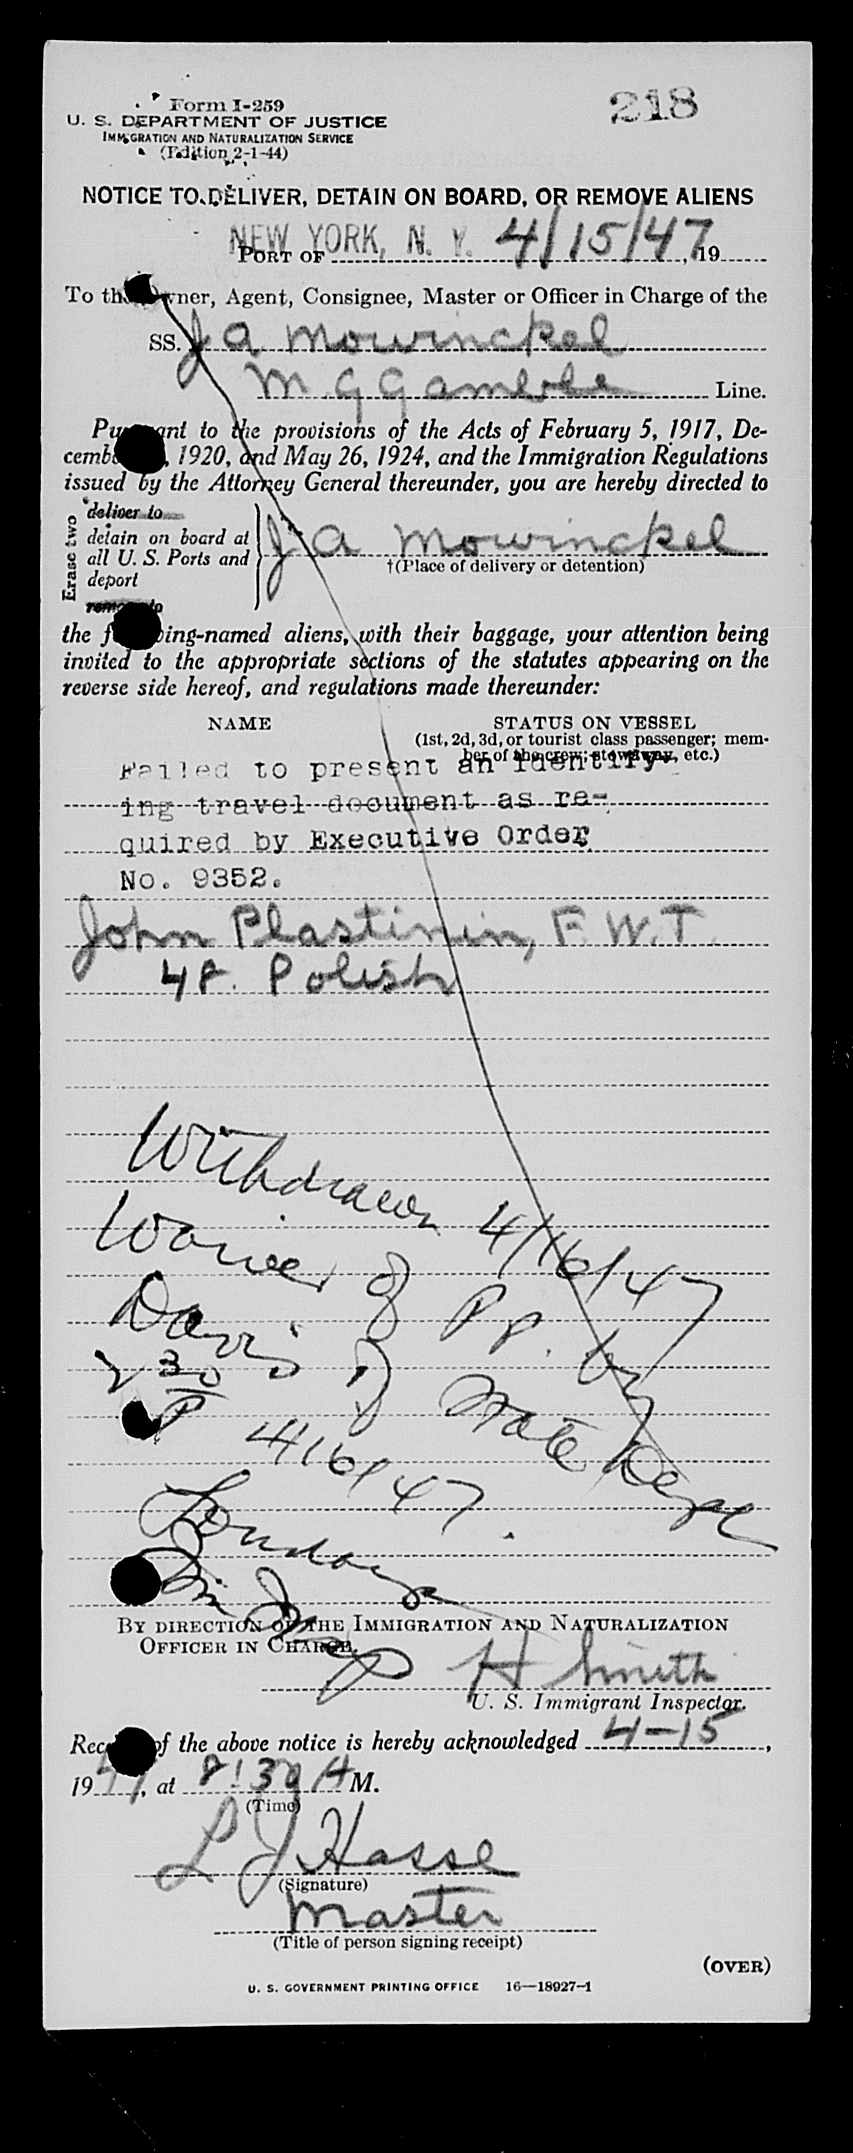 Form I-259
218
U. S. DEPARTMENT OF JUSTICE
IMMIGRATION AND NATURALIZATION SERVICE
(Edition 2-1-44)
NOTICE TO DELIVER, DETAIN ON BOARD, OR REMOVE ALIENS
NEW YORK, N. Y. 4/15/47
PORT OF , 19
To the Owner, Agent, Consignee, Master or Officer in Charge of the
SS. J A Mowinckel
M. G Gamble Line.
Pursuant to the provisions of the Acts of February 5, 1917, De-
cember , 1920, and May 26, 1924, and the Immigration Regulations
issued by the Attorney General thereunder, you are hereby directed to
Erase two
deliver to
detain on board at
all U. S. Ports and
deport
remove to
J A Mowinckel
†(Place of delivery or detention)
the following-named aliens, with their baggage, your attention being
invited to the appropriate sections of the statutes appearing on the
reverse side hereof, and regulations made thereunder:
NAME STATUS ON VESSEL
(1st, 2d, 3d, or tourist class passenger; mem-
ber of the crew; stowaway, etc.)
Failed to present an identify-
ing travel document as re-
quired by Executive Order
No. 9352.
John Plastinin, F. W. T.
48. Polish
Withdrawn 4/16/47
Waiver of PP. by
Davis of State Dept
2 30 P 4/16/47.
BY DIRECTION OF THE IMMIGRATION AND NATURALIZATION
OFFICER IN CHARGE.
H Smith
U. S. Immigrant Inspector.
Receipt of the above notice is hereby acknowledged 4-15,
1947, at 8:30 A M.
(Time)
L J Hasse
(Signature)
Master
(Title of person signing receipt)
(OVER)
U. S. GOVERNMENT PRINTING OFFICE 16—18927-1